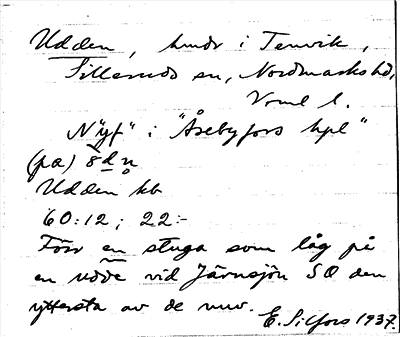 Udden, hmdr i Tenvik,
Silleruds sn, Nordmarks hd,
Vrml l.
"Nyf" i "Åsebyfors hpl"
(pa) ŏdn
Udden kb
60:12; 22:-
Förr en stuga som låg på
en udde vid Järnsjön SO den
yttersta av de nuv.
E. Silfors 1937.